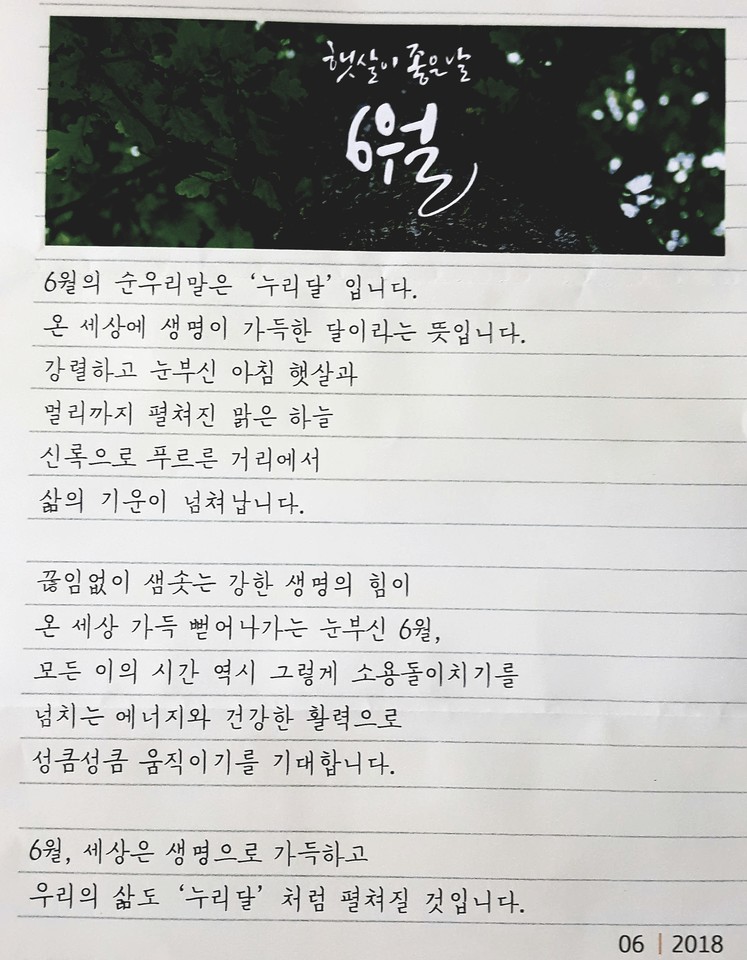 햇살이 좋은 날
6월
6월의 순우리말은 ‘누리달’ 입니다.
온 세상에 생명이 가득한 달이라는 뜻입니다.
강렬하고 눈부신 아침 햇살과
멀리까지 펼쳐진 맑은 하늘
신록으로 푸르른 거리에서
삶의 기운이 넘쳐납니다.
끊임없이 샘솟는 강한 생명의 힘이
온 세상 가득 뻗어나가는 눈부신 6월,
모든 이의 시간 역시 그렇게 소용돌이치기를
넘치는 에너지와 건강한 활력으로
성큼성큼 움직이기를 기대합니다.
6월, 세상은 생명으로 가득하고
우리의 삶도 ‘누리달’ 처럼 펼쳐질 것입니다.
06 | 2018